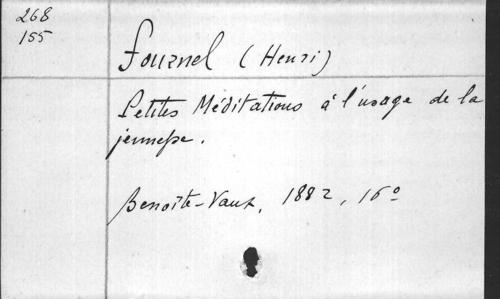 268
155
Fournel (Henri)
Petites Méditations à l'usage de la
jeunesse.
Benoîte-Vaux, 1882, 16º